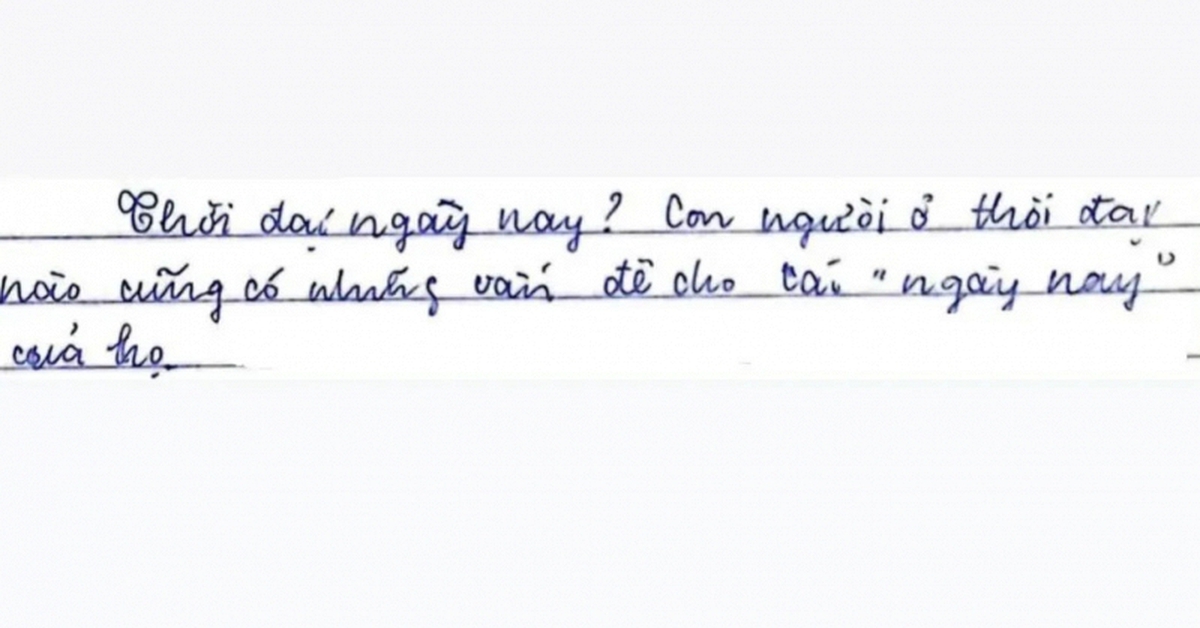 Thời đại ngày nay? Con người ở thời đại
nào cũng có những vấn đề cho cái "ngày nay"
của họ.